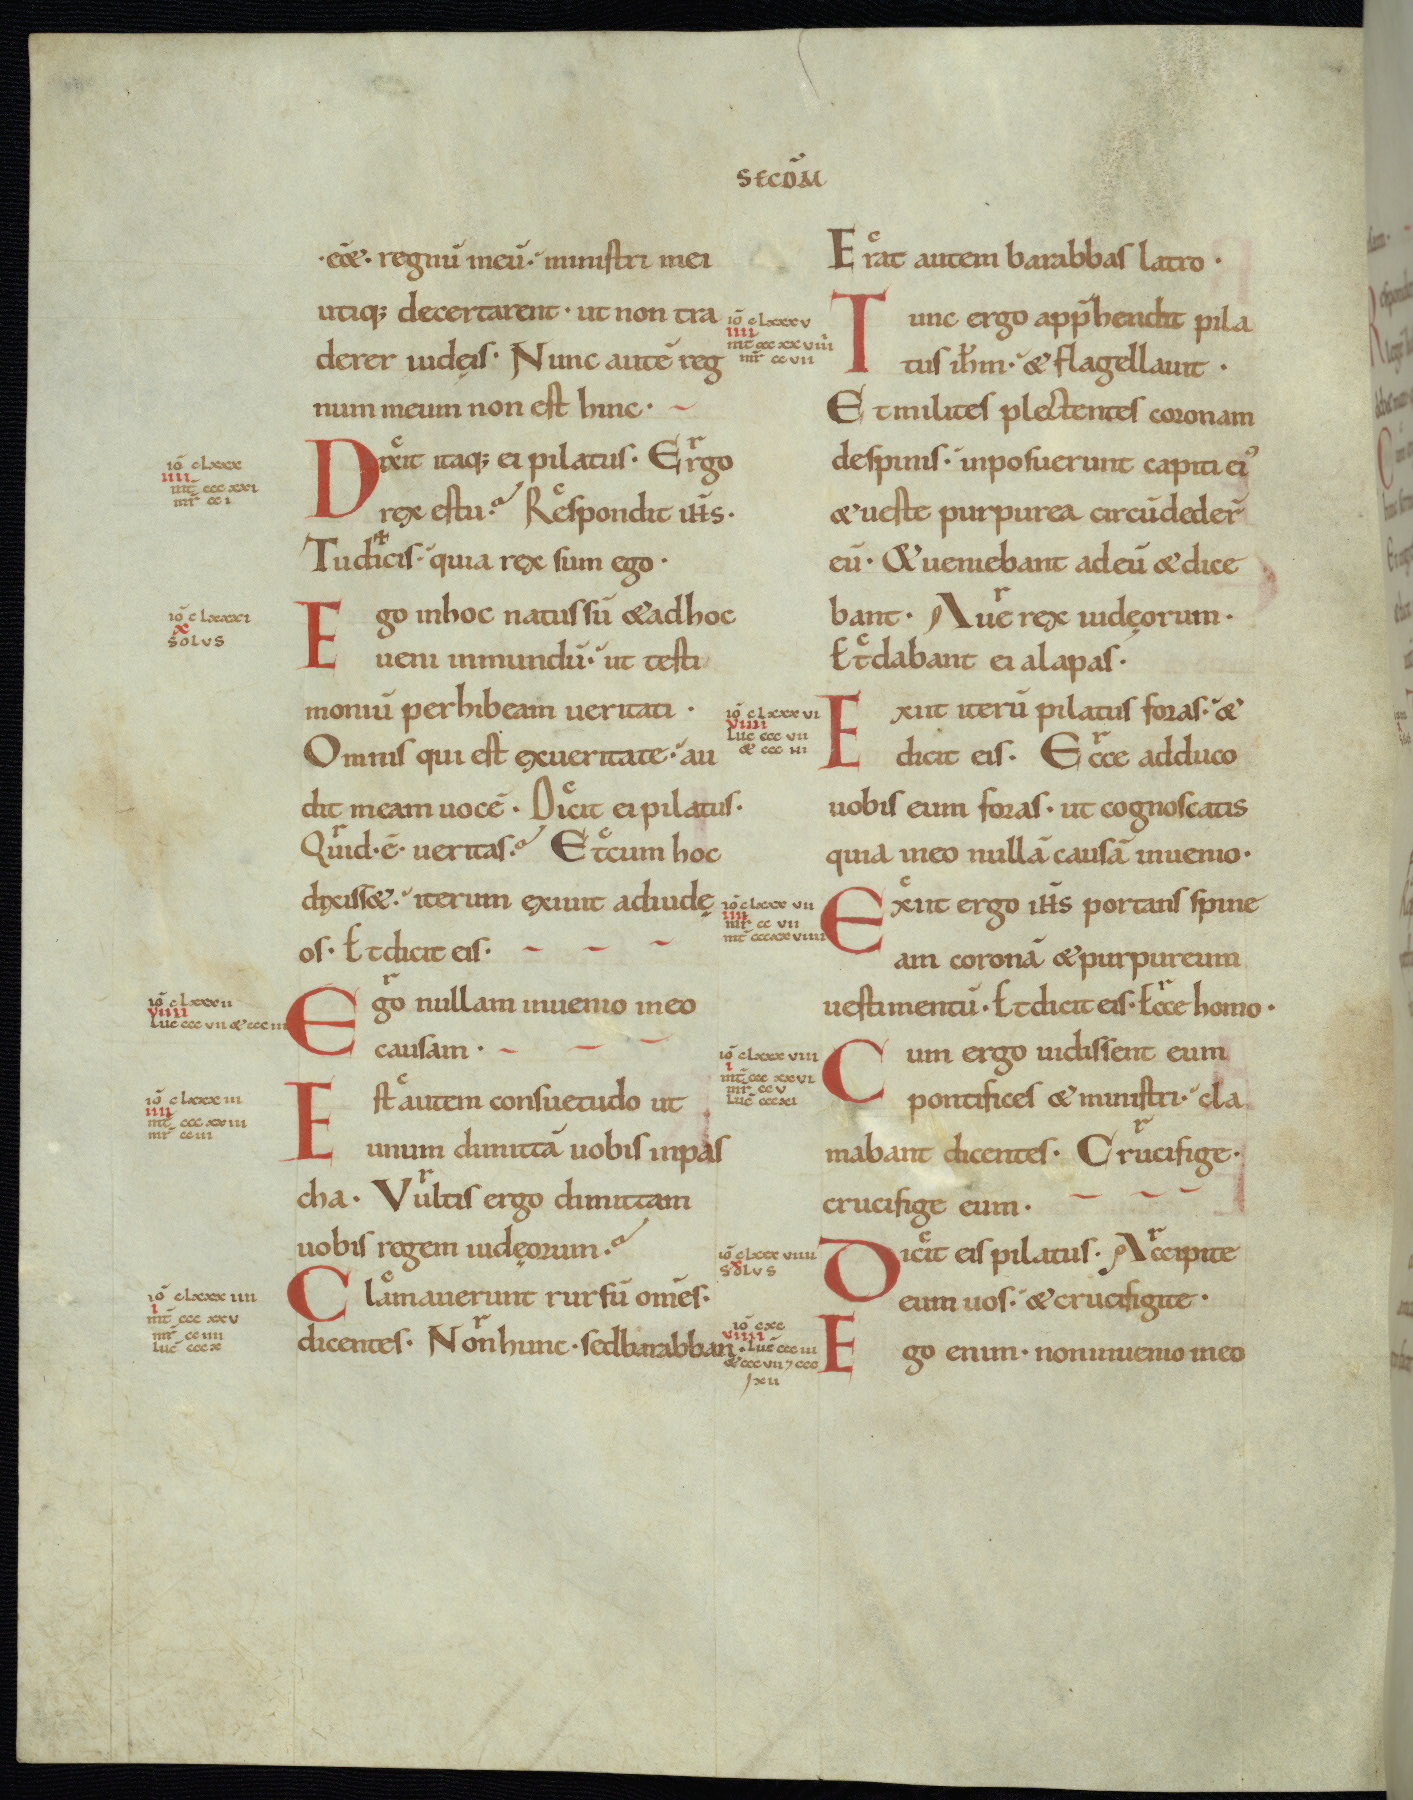 SECDM̄
·eēt· regnū meū· ministri mei
utiq; decertarent· ut non tra
derer iudęis· Nunc autē reg
num meum non est hinc·
iō clxxx
iiii
mt̄ cccxxi
mr̄ cci
Dixit itaq; ei pilatus· Ergo
rex es tu· Respondit ih̄s·
Tu dicis· quia rex sum ego·
iō clxxxi
x
SOLVS
Ego in hoc natus sū & ad hoc
ueni in mundū· ut testi
moniū perhibeam ueritati·
Omnis qui est ex ueritate· au
dit meam uocē· Dicit ei pilatus·
Quid·ē· ueritas· Et cum hoc
dixiss&· iterum exiuit ad iudę
os· Et dicit eis·
iō clxxxii
viiii
luc̄ cccvii & ccciii
Ego nullam inuenio in eo
causam·
iō clxxxiii
iiii
mt̄ cccxxiii
mr̄ cciii
Est autem consuetudo ut
unum dimittā uobis in pas
cha· Vultis ergo dimittam
uobis regem iudęorum·
iō clxxxiiii
i
mt̄ cccxxv
mr̄ cciiii
luc̄ cccx
Clamauerunt rursū omēs·
dicentes· Non hunc· sed barabban·
Erat autem barabbas latro·
iō clxxxv
iiii
mt̄ cccxxviii
mr̄ ccvii
Tunc ergo app̄hendit pila
tus ih̄m· & flagellauit·
Et milites plectentes coronam
de spinis· inposuerunt capiti ei9
& ueste purpurea circūdeder̄
eū· & ueniebant ad eū & dice
bant· Aue rex iudęorum·
Et dabant ei alapas·
iō clxxxvi
viiii
luc̄ cccvii
& ccciii
Exiit iterū pilatus foras· &
dicit eis· Ecce adduco
uobis eum foras· ut cognoscatis
quia in eo nullā causā inuenio·
iō clxxxvii
iiii
mr̄ ccvii
mt̄ cccxxviiii
Exiit ergo ih̄s portans spine
am coronā & purpureum
uestimentū· Et dicit eis· Ecce homo·
iō clxxxviii
i
mt̄ cccxxvi
mr̄ ccv
luc̄ cccxi
Cum ergo uidissent eum
pontifices & ministri· cla
mabant dicentes· Crucifige·
crucifige eum·
iō clxxxviiii
x
SOLVS
Dicit eis pilatus· Accipite
eum uos· & crucifigite·
iō cxc
viiii
luc̄ ccciii
& cccvii 7 ccc
xii
Ego enim· non inuenio in eo